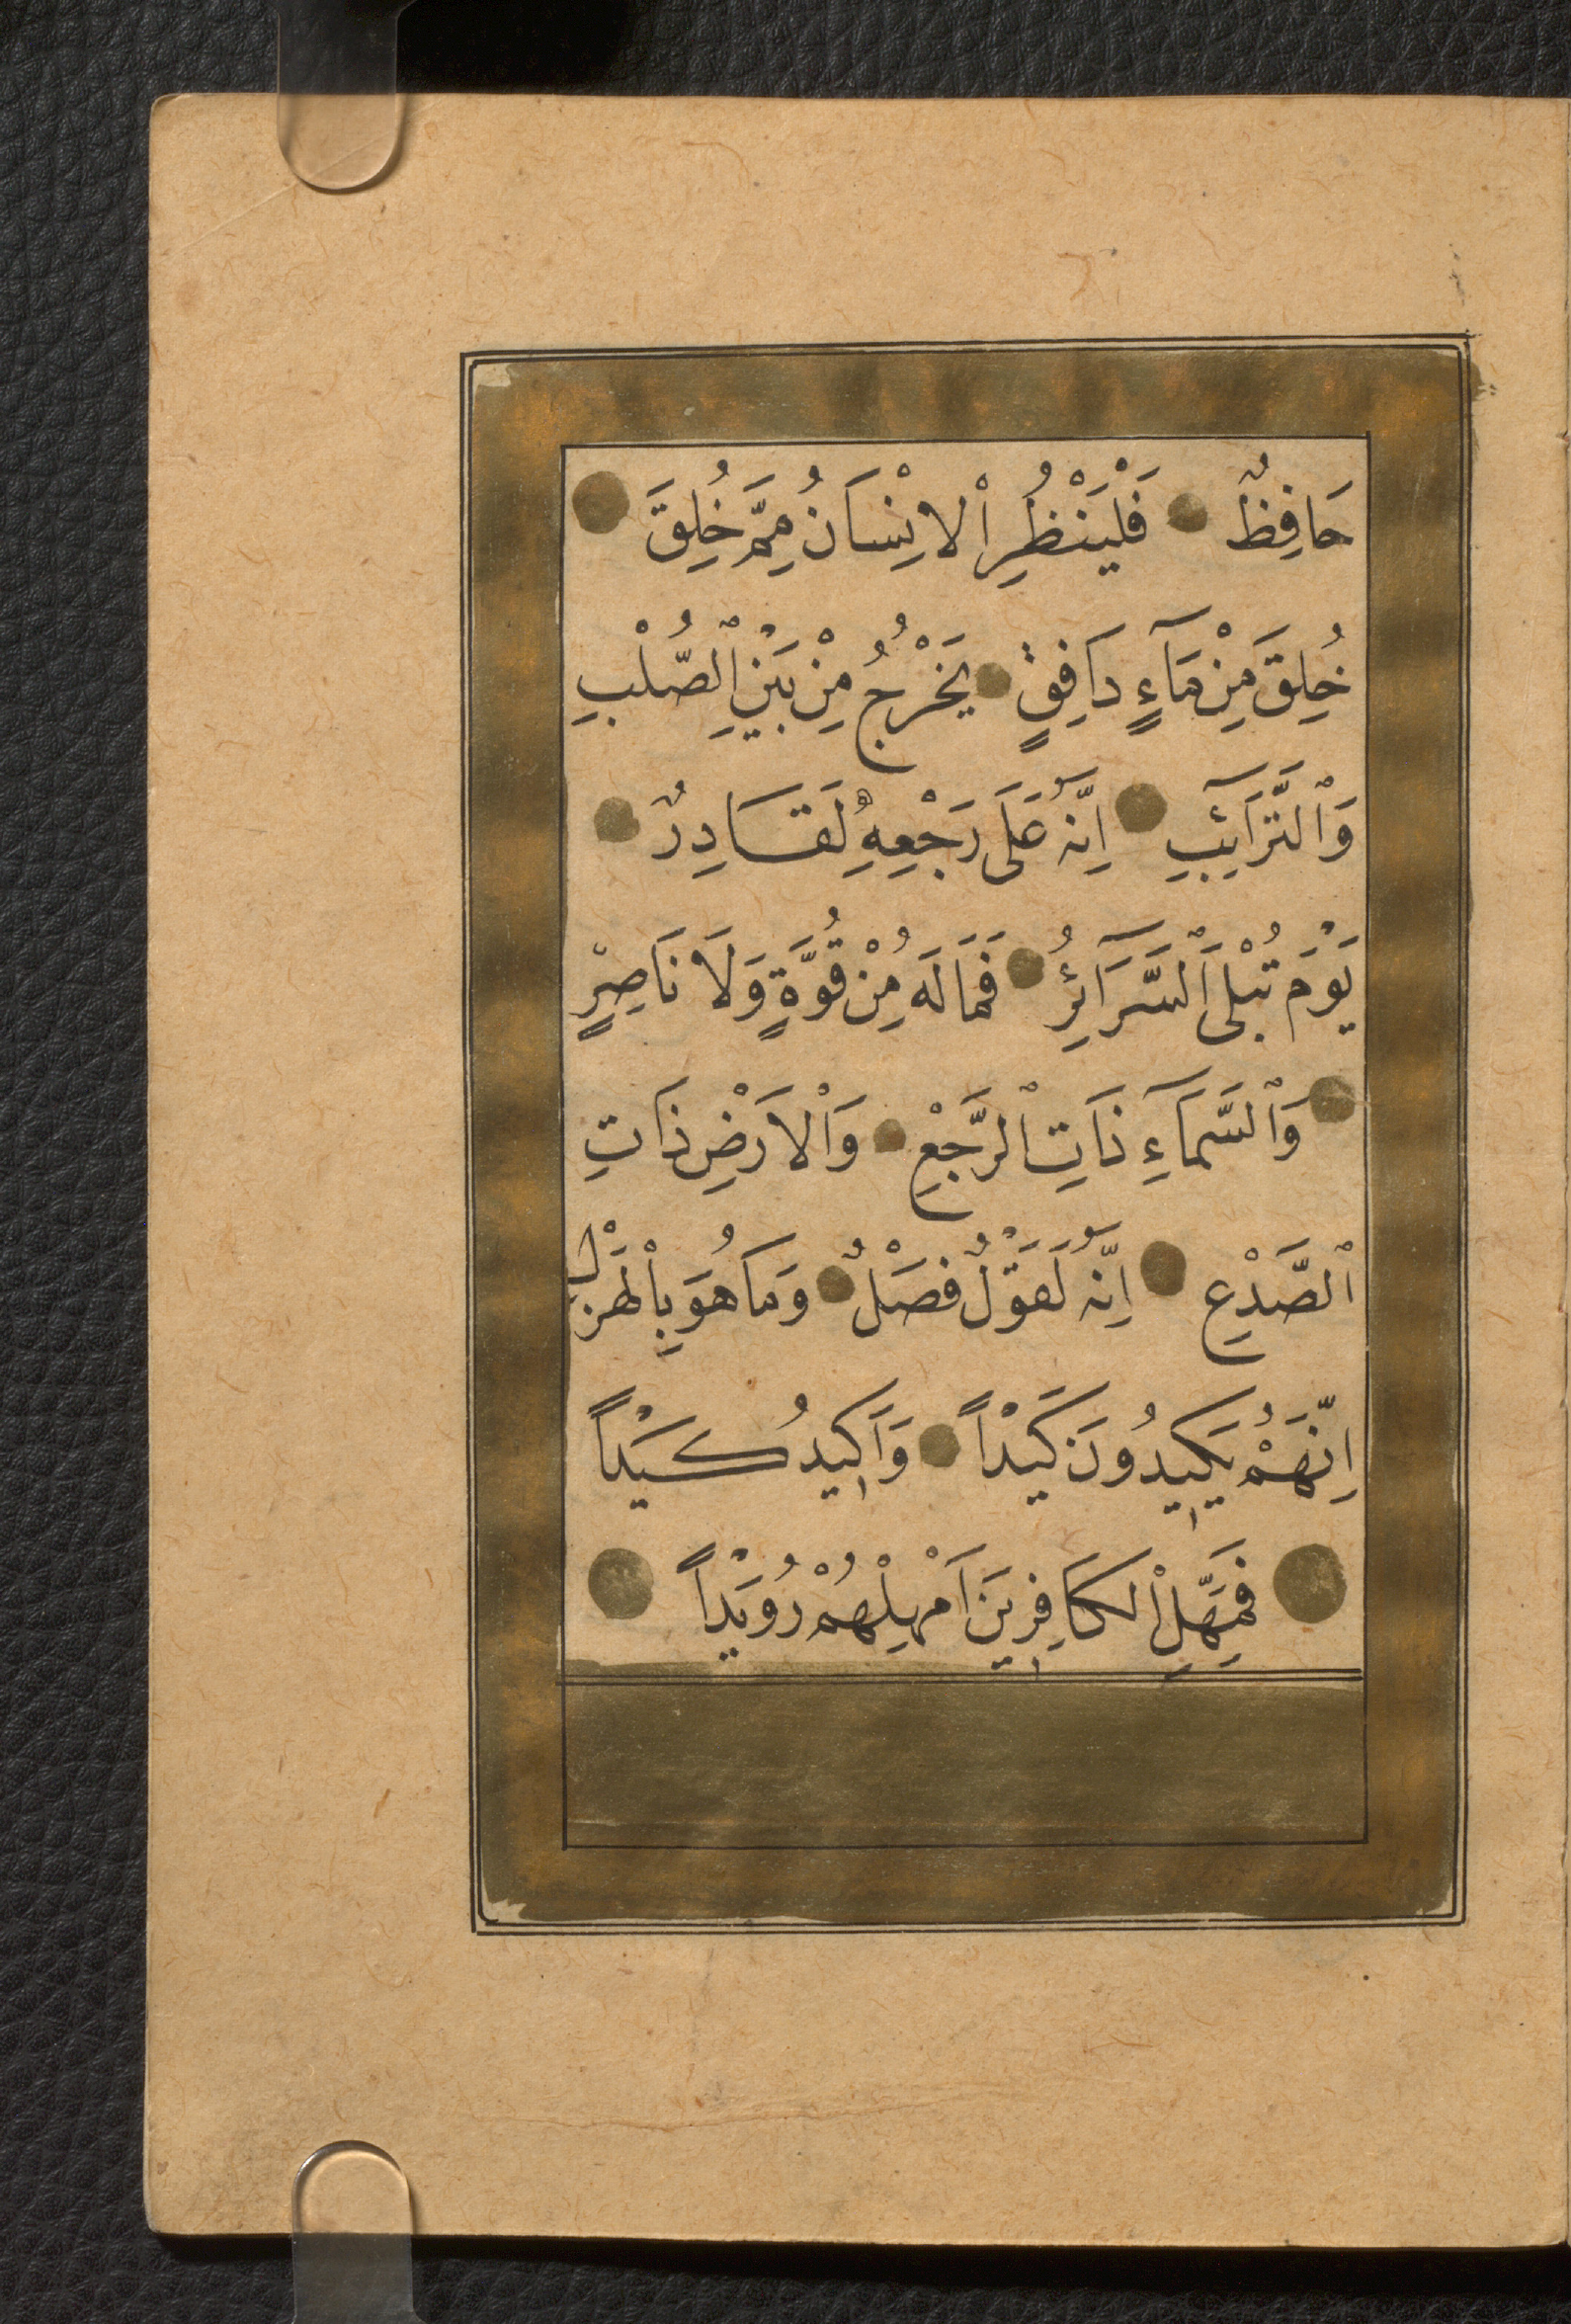 حَافِظٌ فَلْيَنْظُرِ اْلاِنْسَانُ مِمَّ خُلِقَ
خُلِقَ مِنْ مَآءٍ دَافِقٍ يَخْرُجُ مِنْ بَيْنِ الصُّلْبِ
وَالتَّرَآئِبِ اِنَّهُ عَلَى رَجْعِهِ لَقَادِرٌ
يَوْمَ تُبْلَى السَّرَآئِرُ فَمَا لَهُ مِنْ قُوَّةٍ وَلَا نَاصِرٍ
وَالسَّمَآءِ ذَاتِ الرَّجْعِ وَاْلاَرْضِ ذَاتِ
الصَّدْعِ اِنَّهُ لَقَوْلٌ فَصْلٌ وَمَا هُوَ بِالْهَزْلِ
اِنَّهُمْ يَكِيدُونَ كَيْدًا وَاَكِيدُ كَيْدًا
فَمَهِّلِ الْكَافِرِينَ اَمْهِلْهُمْ رُوَيْدًا